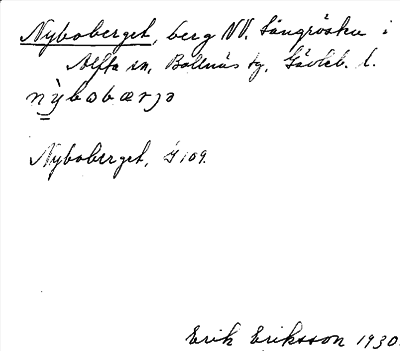 Nyboberget, berg NV. Långröska i
Alfta sn, Bollnäs tg, Gävleb. l.
nỳbobærjə
Nyboberget, G 109.
Erik Eriksson 1930.